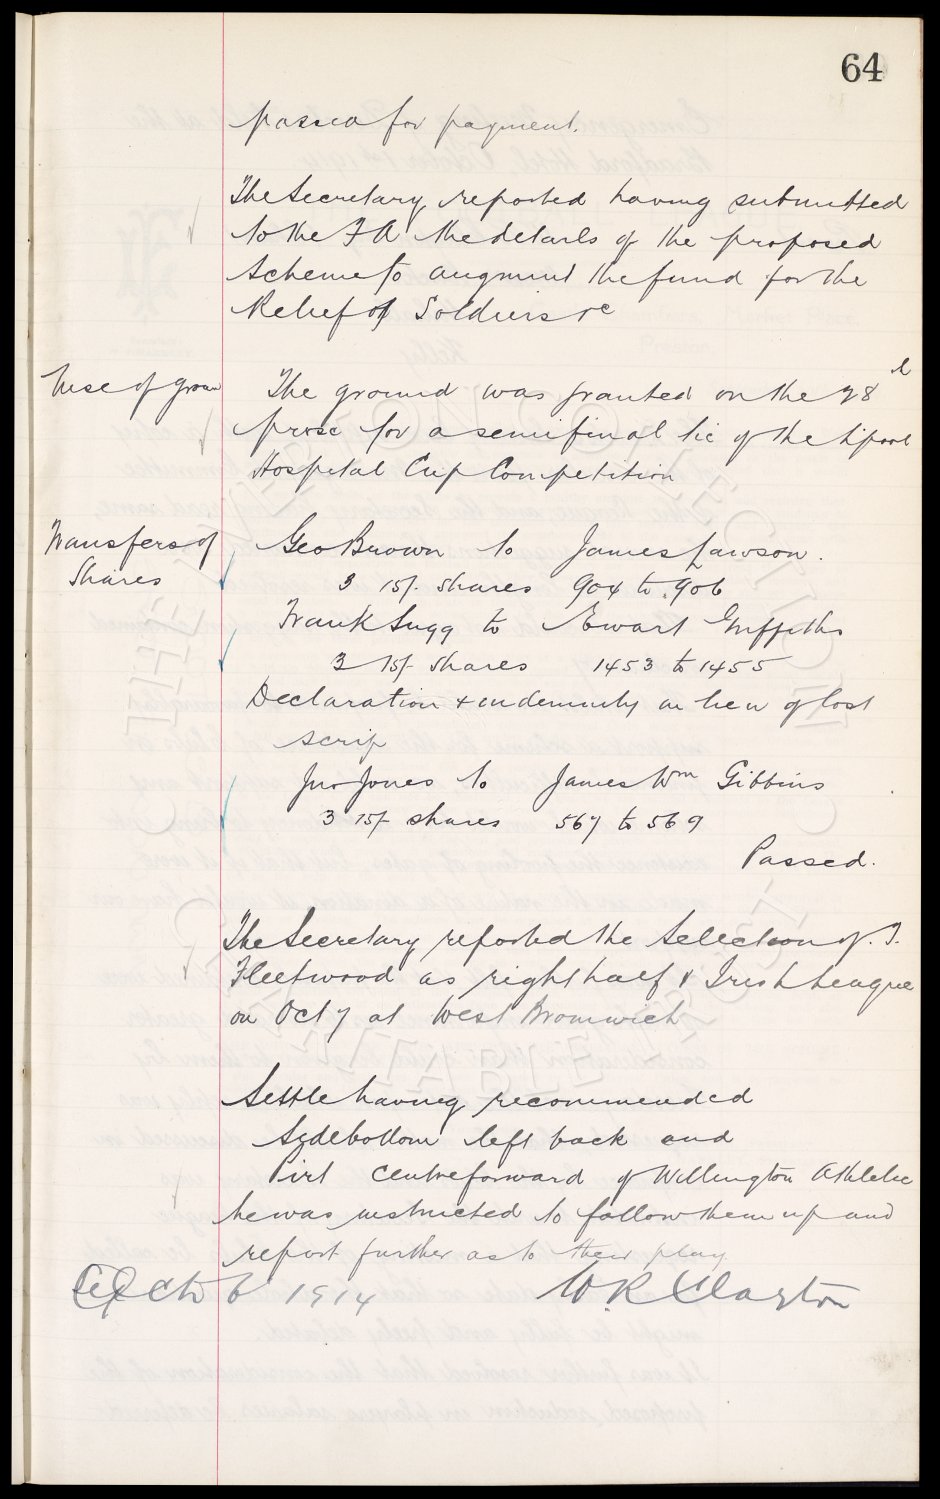 64
passed for payment.
The Secretary reported having submitted
to the FA the details of the proposed
Scheme to augment the fund for the
Relief of Soldiers &c
Use of ground
The ground was granted on the 28th
prox for a semifinal tie of the L'pool
Hospital Cup Competition
Transfers of
Shares
Geo Brown to James Lawson.
3 15/- shares 904 to 906
Frank Sugg to Ewart Griffiths
3 15/- shares 1453 to 1455
Declaration & indemnity in lieu of lost
scrip
Jno Jones to James Wm Gibbins
3 15/- shares 567 to 569
Passed.
The Secretary reported the Selection of T.
Fleetwood as right half v Irish League
on Oct 7 at West Bromwich
Settle having recommended
Sydebottom left back and
Pirt Centreforward of Willington Athletic
he was instructed to follow them up and
report further as to their play
Oct 6 1914
W. R Clayton
THE EVERTON COLLECTION
CHARITABLE TRUST